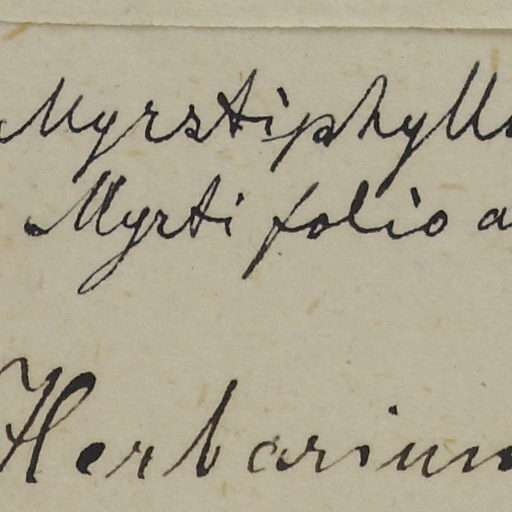 Myrstiphyll
Myrti folio a
Herbarium